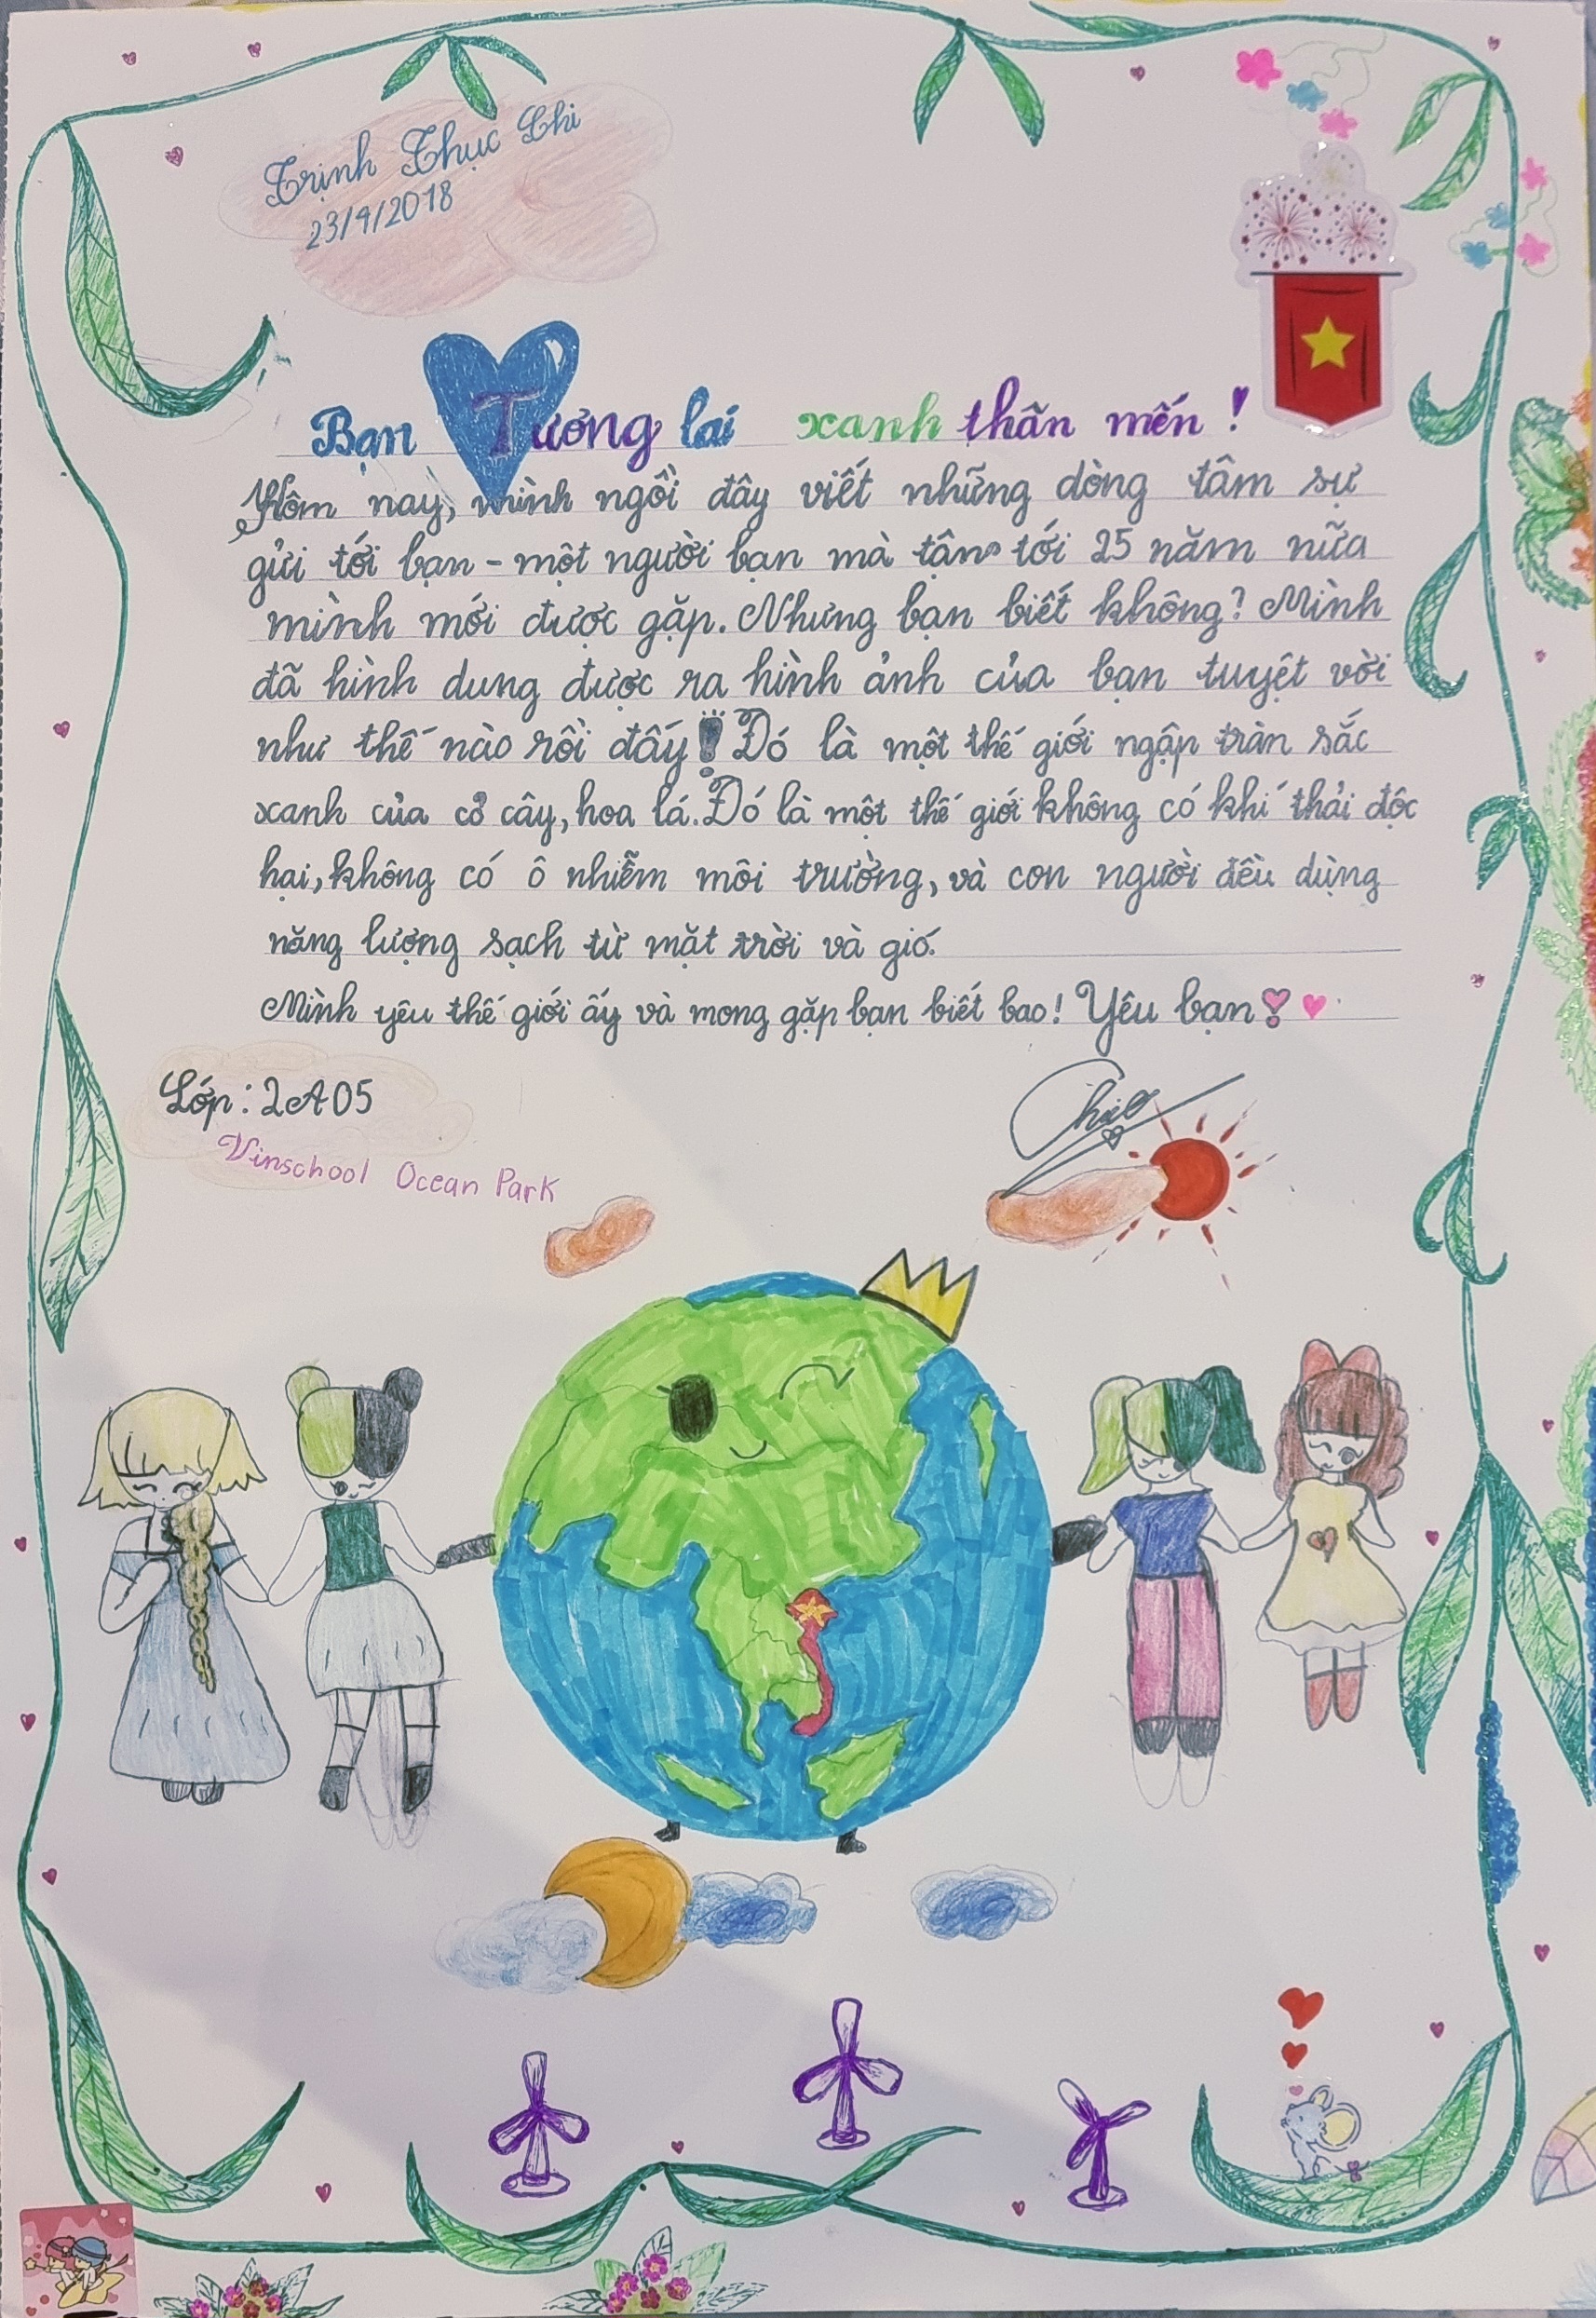 Trịnh Thục Chi
23/4/2018
Bạn Tương lai xanh thân mến!
Hôm nay, mình ngồi đây viết những dòng tâm sự
gửi tới bạn - một người bạn mà tận tới 25 năm nữa
mình mới được gặp. Nhưng bạn biết không? Mình
đã hình dung được ra hình ảnh của bạn tuyệt vời
như thế nào rồi đấy! Đó là một thế giới ngập tràn sắc
xanh của cỏ cây, hoa lá. Đó là một thế giới không có khí thải độc
hại, không có ô nhiễm môi trường, và con người đều dùng
năng lượng sạch từ mặt trời và gió.
Mình yêu thế giới ấy và mong gặp bạn biết bao! Yêu bạn!
Lớp: 2A05
Vinschool Ocean Park